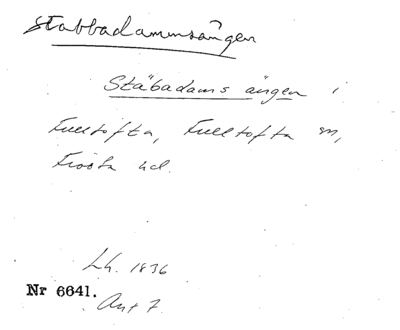 Stabbadammsängen
Stäbadams ängen i
Fulltofta, Fulltofta sn,
Frosta hd.
Lh. 1836
Nr 6641.
Akt 7.